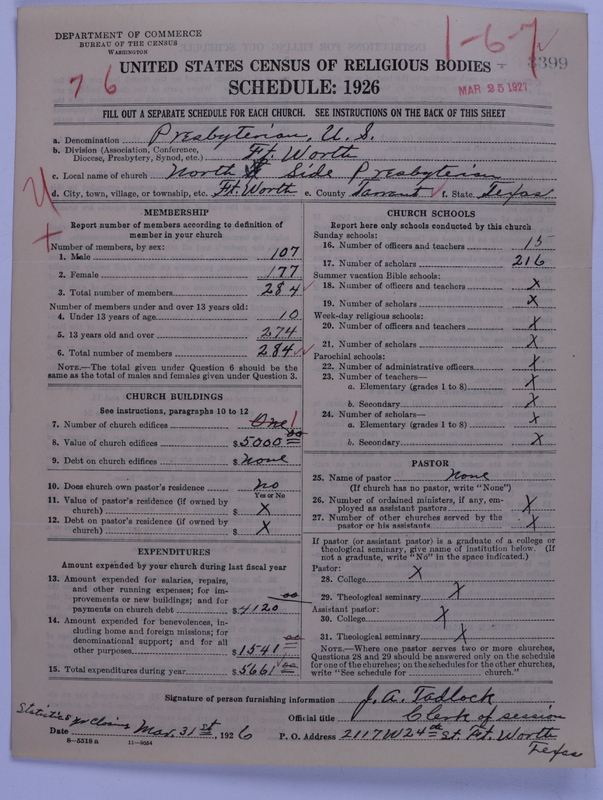 DEPARTMENT OF COMMERCE
BUREAU OF THE CENSUS
WASHINGTON
1-6-7
3399
7 6
UNITED STATES CENSUS OF RELIGIOUS BODIES
MAR 25 1927
SCHEDULE: 1926
FILL OUT A SEPARATE SCHEDULE FOR EACH CHURCH. SEE INSTRUCTIONS ON THE BACK OF THIS SHEET
a. Denomination Presbyterian, U.S.
b. Division (Association, Conference, Diocese, Presbytery, Synod, etc.) Ft. Worth
c. Local name of church North Side Presbyterian
d. City, town, village, or township, etc. Ft. Worth e. County Tarrant f. State Texas
MEMBERSHIP
Report number of members according to definition of
member in your church
Number of members, by sex:
1. Male 107
2. Female 177
3. Total number of members 284
Number of members under and over 13 years old:
4. Under 13 years of age 10
5. 13 years old and over 274
6. Total number of members 284
NOTE.—The total given under Question 6 should be the
same as the total of males and females given under Question 3.
CHURCH BUILDINGS
See instructions, paragraphs 10 to 12
7. Number of church edifices One 1
8. Value of church edifices $5000 00
9. Debt on church edifices $None
10. Does church own pastor's residence No
Yes or No
11. Value of pastor's residence (if owned by
church) $ X
12. Debt on pastor's residence (if owned by
church) $ X
EXPENDITURES
Amount expended by your church during last fiscal year
13. Amount expended for salaries, repairs,
and other running expenses; for im-
provements or new buildings; and for
payments on church debt $4120 00
14. Amount expended for benevolences, in-
cluding home and foreign missions; for
denominational support; and for all
other purposes $1541 00
15. Total expenditures during year $5661 00
CHURCH SCHOOLS
Report here only schools conducted by this church
Sunday schools:
16. Number of officers and teachers 15
17. Number of scholars 216
Summer vacation Bible schools:
18. Number of officers and teachers X
19. Number of scholars X
Week-day religious schools:
20. Number of officers and teachers X
21. Number of scholars X
Parochial schools:
22. Number of administrative officers X
23. Number of teachers—
a. Elementary (grades 1 to 8) X
b. Secondary X
24. Number of scholars—
a. Elementary (grades 1 to 8) X
b. Secondary X
PASTOR
25. Name of pastor None
(If church has no pastor, write "None")
26. Number of ordained ministers, if any, em-
ployed as assistant pastors X
27. Number of other churches served by the
pastor or his assistants X
If pastor (or assistant pastor) is a graduate of a college or
theological seminary, give name of institution below. (If
not a graduate, write "No" in the space indicated.)
Pastor:
28. College X
29. Theological seminary X
Assistant pastor:
30. College X
31. Theological seminary X
NOTE.—Where one pastor serves two or more churches,
Questions 28 and 29 should be answered only on the schedule
for one of the churches; on the schedules for the other churches,
write "See schedule for church."
Signature of person furnishing information J. A. Tadlock
Official title Clerk of session
Statistics yr Closing
Date Mar. 31st, 1926 P. O. Address 2117 W 24th St. Ft. Worth
Texas
8—5518 a 11—9054